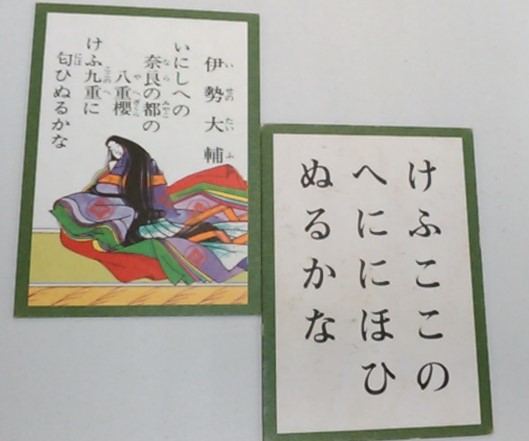 伊勢大輔
いにしへの
奈良の都の
八重櫻
けふ九重に
匂ひぬるかな
けふここの
へににほひ
ぬるかな